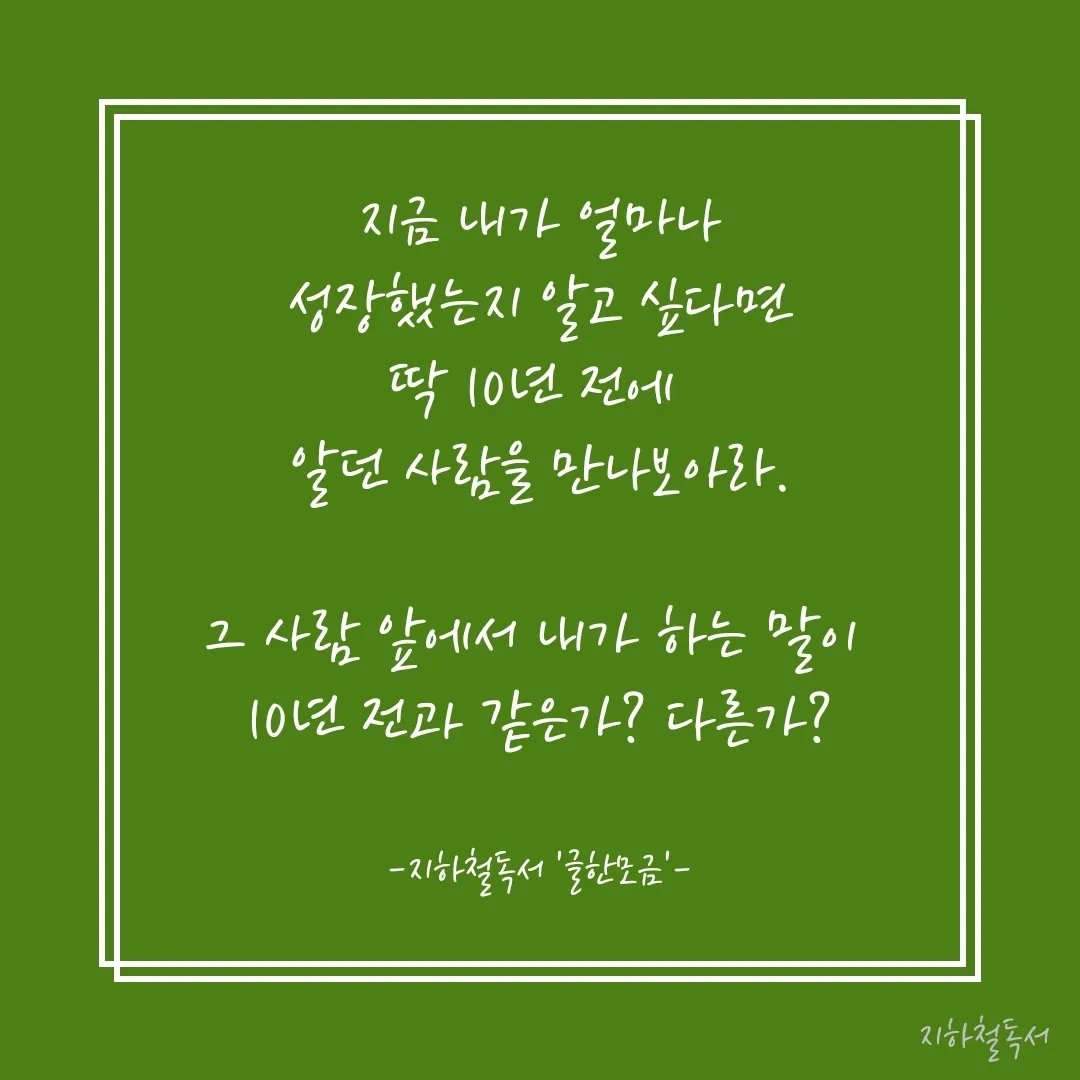 지금 내가 얼마나
성장했는지 알고 싶다면
딱 10년 전에
알던 사람을 만나보아라.
그 사람 앞에서 내가 하는 말이
10년 전과 같은가? 다른가?
-지하철독서 '글한모금'-
지하철독서